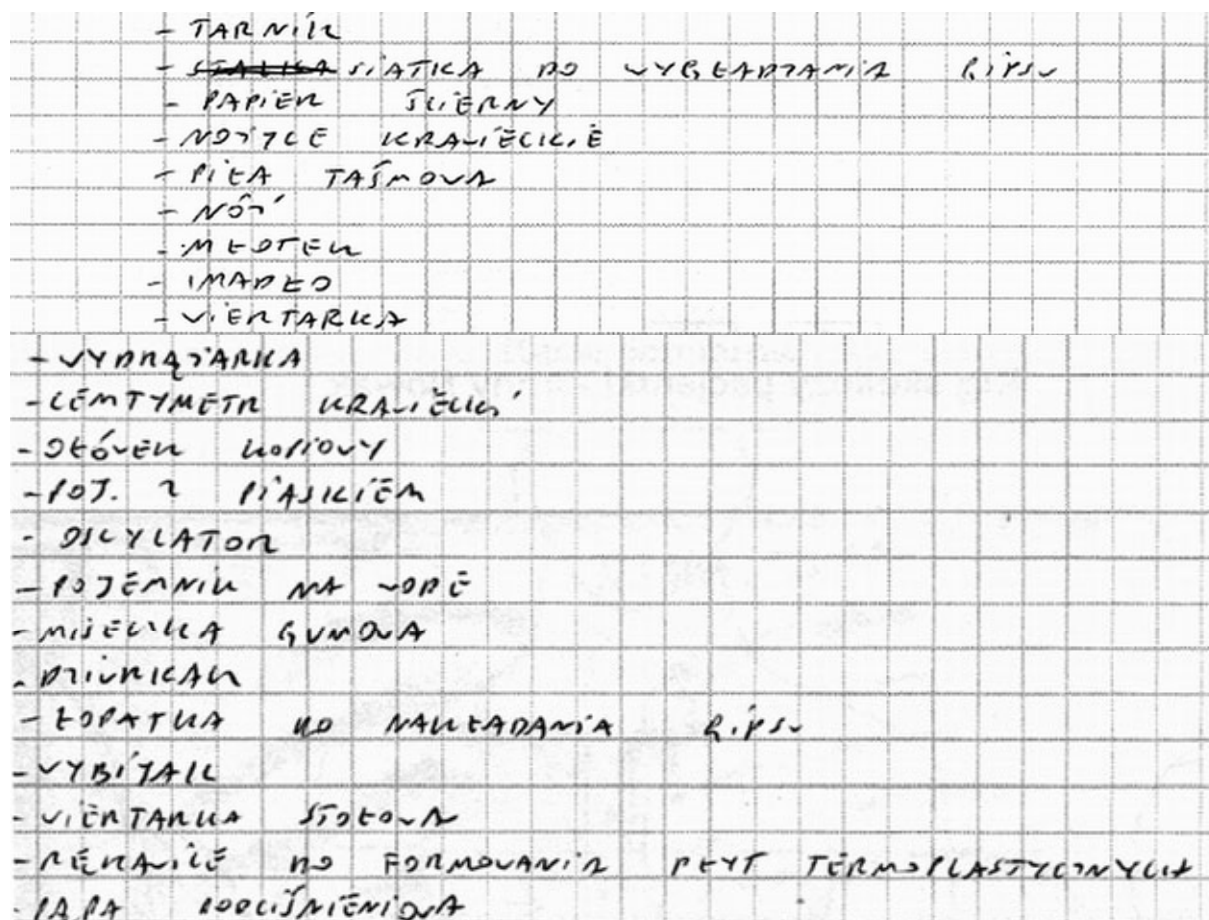 - TARNIK
- SIATKA DO WYGŁADZANIA GIPSU
- PAPIER ŚCIERNY
- NOŻYCE KRAWIECKIE
- PIŁA TAŚMOWA
- NÓŻ
- MŁOTEK
- IMADŁO
- WIERTARKA
- WYDRĄŻARKA
- CENTYMETR KRAWIECKI
- OŁÓWEK KOPIOWY
- POJ. Z PIASKIEM
- OSCYLATOR
- POJEMNIK NA WODĘ
- MISECZKA GUMOWA
- DZIURKACZ
- ŁOPATKA DO NAKŁADANIA GIPSU
- WYBIJAK
- WIERTARKA STOŁOWA
- RĘKAWICE DO FORMOWANIA PŁYT TERMOPLASTYCZNYCH
- PAPA PODCIŚNIENIOWA